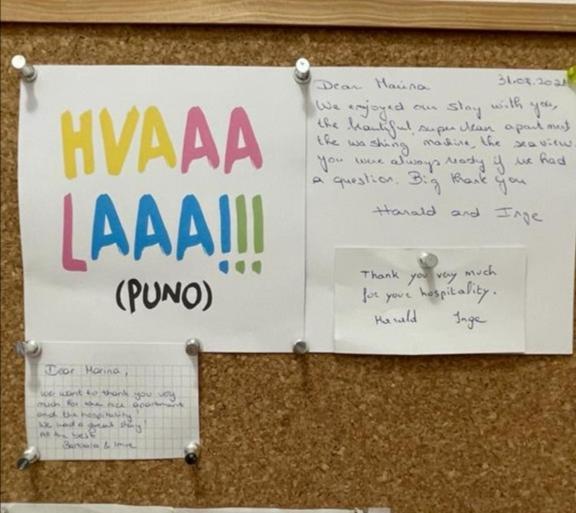 HVAAA
LAAAI!!!
(PUNO)
Dear Marina 31.08.202
We enjoyed our stay with you,
the beautiful, super clean apartment
the washing machine, the seaview.
you were always ready if we had
a question. Big thank you
Harald and Inge
Thank you very much
for your hospitality.
Harald Inge
Dear Marina,
We want to thank you very
much for the nice apartment
and the hospitality!
We had a great stay!
All the best
Barbara &